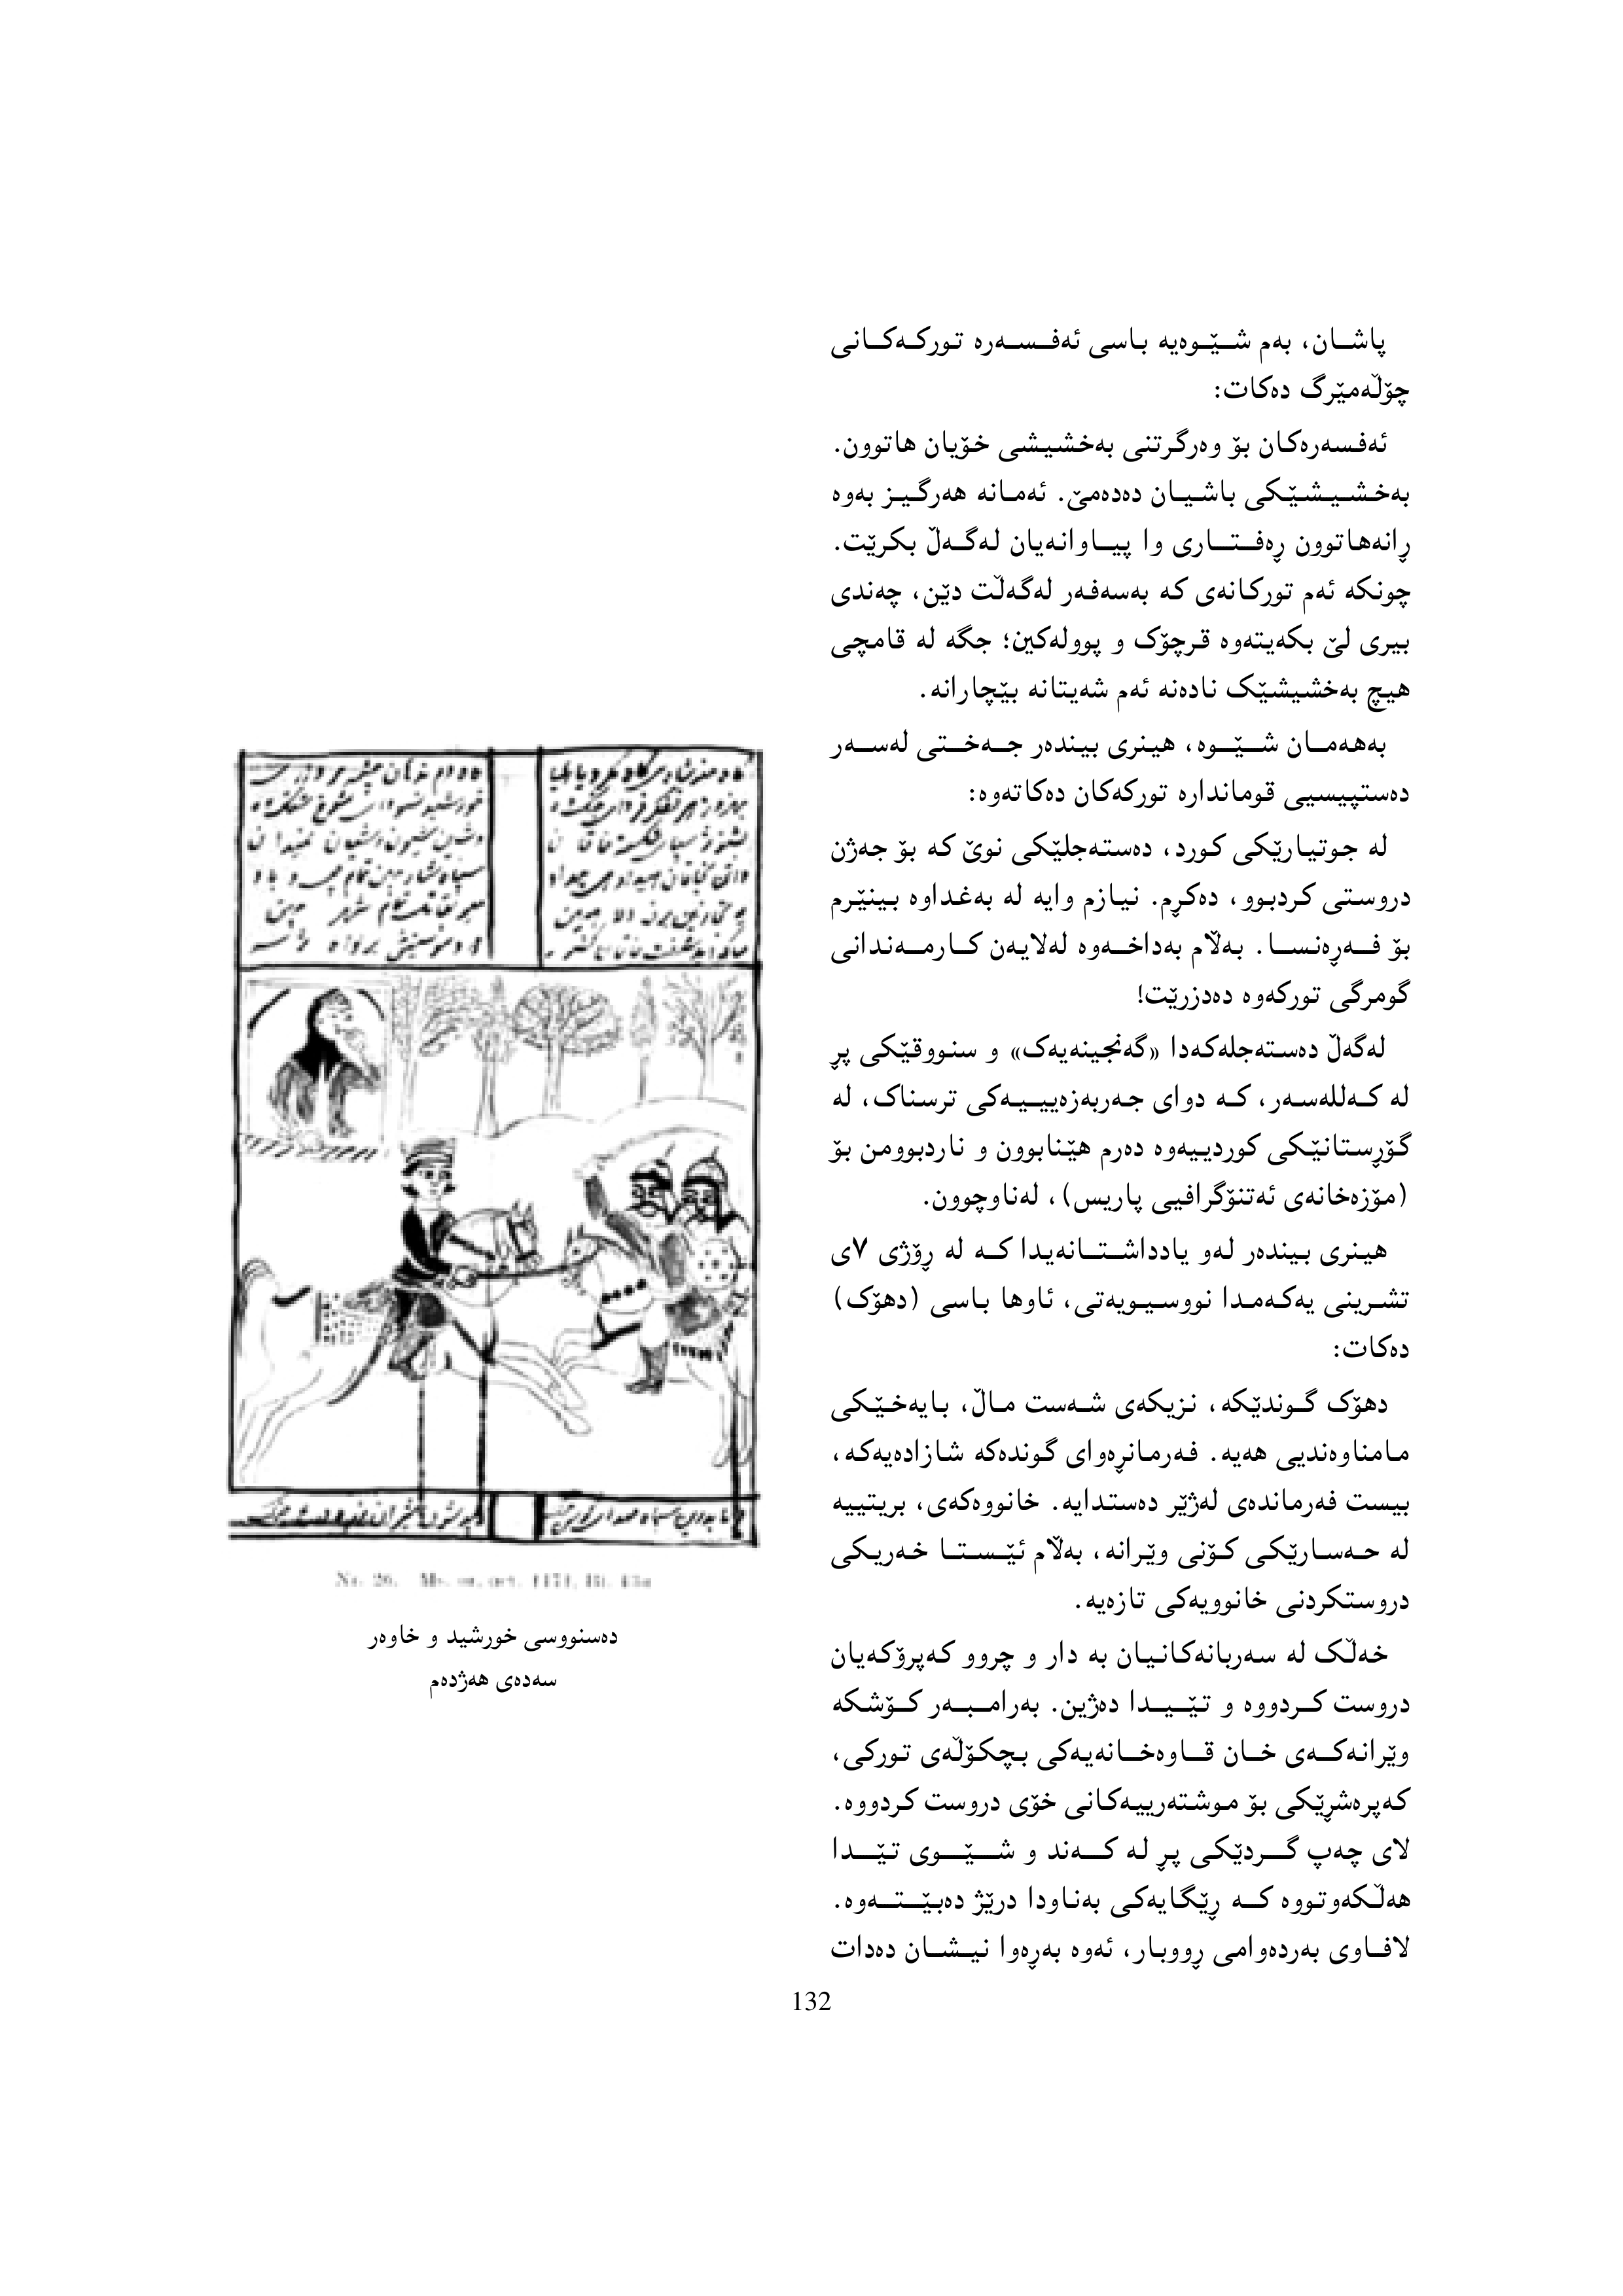 پاشان، بەم شێوەیە باسی ئەفسەرە تورکەکانی
چۆڵەمێرگ دەکات:
ئەفسەرەکان بۆ وەرگرتنی بەخشیشی خۆیان هاتوون.
بەخشیشێکی باشیان دەدەمێ. ئەمانە هەرگیز بەوە
ڕانەهاتوون ڕەفتاری وا پیاوانەیان لەگەڵ بکرێت.
چونکە ئەم تورکانەی کە بەسەفەر لەگەڵت دێن، چەندی
بیری لێ بکەیتەوە قرچۆک و پوولەکین؛ جگە لە قامچی
هیچ بەخشیشێک نادەنە ئەم شەیتانە بێچارانە.
بەهەمان شێوە، هینری بیندەر جەختی لەسەر
دەستپیسیی قوماندارە تورکەکان دەکاتەوە:
لە جوتیارێکی کورد، دەستەجلێکی نوێ کە بۆ جەژن
دروستی کردبوو، دەکڕم. نیازم وایە لە بەغداوە بینێرم
بۆ فەڕەنسا. بەڵام بەداخەوە لەلایەن کارمەندانی
گومرگی تورکەوە دەدزرێت!
لەگەڵ دەستەجلەکەدا «گەنجینەیەک» و سنووقێکی پڕ
لە کەللەسەر، کە دوای جەربەزەییییەکی ترسناک، لە
گۆڕستانێکی کوردییەوە دەرم هێنابوون و ناردبوومن بۆ
(مۆزەخانەی ئەتنۆگرافیی پاریس)، لەناوچوون.
هینری بیندەر لەو یادداشتانەیدا کە لە ڕۆژی ٧ی
تشرینی یەکەمدا نووسیویەتی، ئاوها باسی (دهۆک)
دەکات:
دهۆک گوندێکە، نزیکەی شەست ماڵ، بایەخێکی
مامناوەندیی هەیە. فەرمانڕەوای گوندەکە شازادەیەکە،
بیست فەرماندەی لەژێر دەستدایە. خانووەکەی، بریتییە
لە حەسارێکی کۆنی وێرانە، بەڵام ئێستا خەریکی
دروستکردنی خانوویەکی تازەیە.
خەڵک لە سەربانەکانیان بە دار و چروو کەپرۆکەیان
دروست کردووە و تێیدا دەژین. بەرامبەر کۆشکە
وێرانەکەی خان قاوەخانەیەکی بچکۆڵەی تورکی،
کەپرەشڕێکی بۆ موشتەرییەکانی خۆی دروست کردووە.
لای چەپ گردێکی پڕ لە کەند و شێوی تێدا
هەڵکەوتووە کە ڕێگایەکی بەناودا درێژ دەبێتەوە.
لافاوی بەردەوامی ڕووبار، ئەوە بەڕەوا نیشان دەدات
دەسنووسی خورشید و خاوەر
سەدەی هەژدەم
132